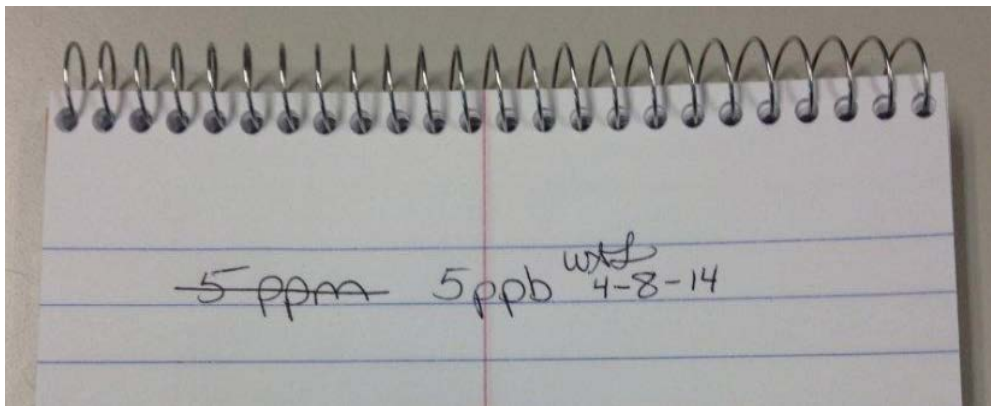 5 ppm 5ppb
4-8-14